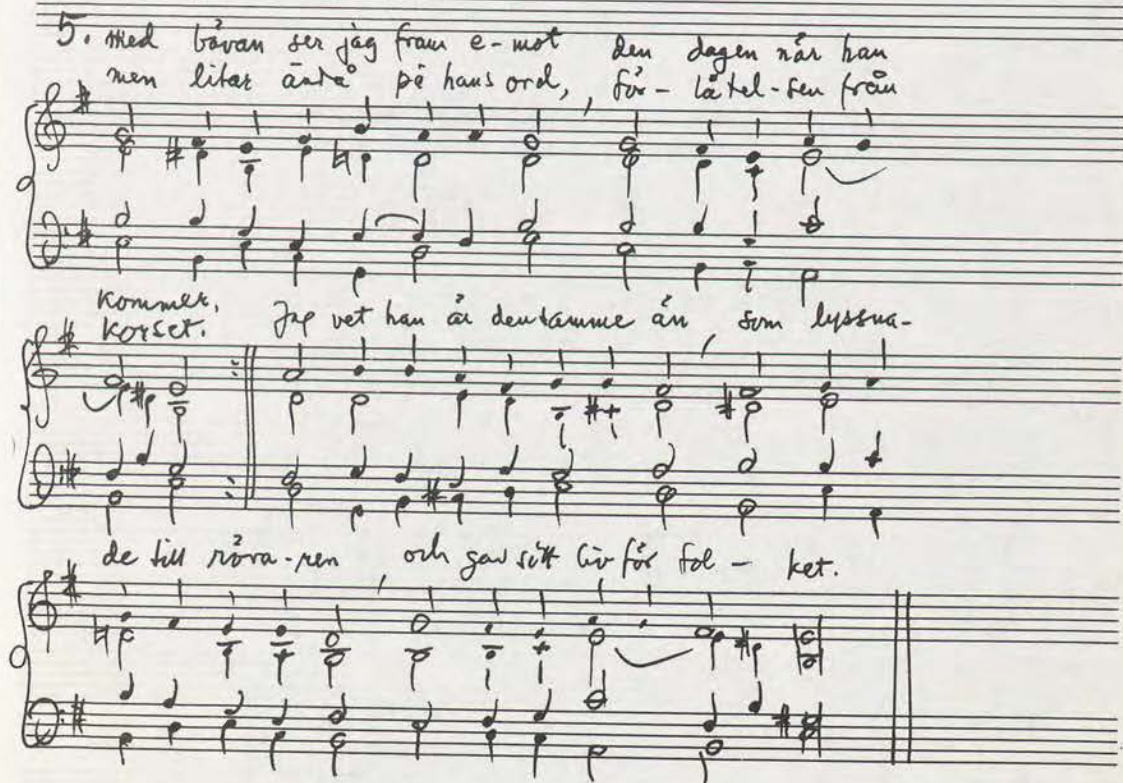 5. Med bävan ser jag fram e-mot den dagen när han
men litar ändå på hans ord, för-låtel-sen från
kommer. Jag vet han är densamme än som lyssna-
korset.
de till röva-ren och gav sitt liv för fol - ket.